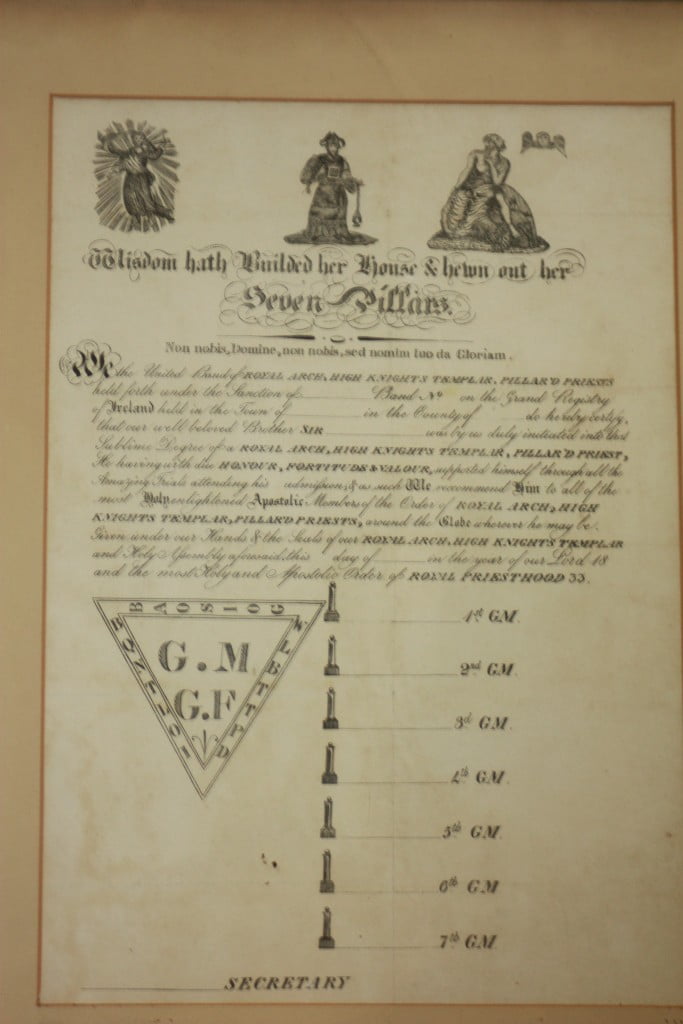 Wisdom hath Builded her House & hewn out her
Seven Pillars.
Non nobis, Domine, non nobis, sed nomini tuo da Gloriam.
We the United Band of ROYAL ARCH, HIGH KNIGHTS TEMPLAR, PILLAR'D PRIESTS
held forth under the Sanction of Band No on the Grand Registry
of Ireland held in the Town of in the County of do hereby certify,
that our well beloved Brother SIR was by us duly initiated into that
Sublime Degree of a ROYAL ARCH, HIGH KNIGHTS TEMPLAR, PILLAR'D PRIEST,
He having with due HONOUR, FORTITUDE & VALOUR, supported himself through all the
Amazing Trials attending his admission, & as such We recommend Him to all of the
most Holy enlightened Apostolic Members of the Order of ROYAL ARCH, HIGH
KNIGHTS TEMPLAR, PILLAR'D PRIESTS, around the Globe wherever he may be.
Given under our Hands & the Seals of our ROYAL ARCH, HIGH KNIGHTS TEMPLAR
and Holy Assembly aforesaid, this day of in the year of our Lord 18
and the most Holy and Apostolic Order of ROYAL PRIESTHOOD 33.
G. M.
G. F
1st GM.
2nd GM.
3d GM.
4th GM.
5th GM.
6th GM
7th GM.
SECRETARY